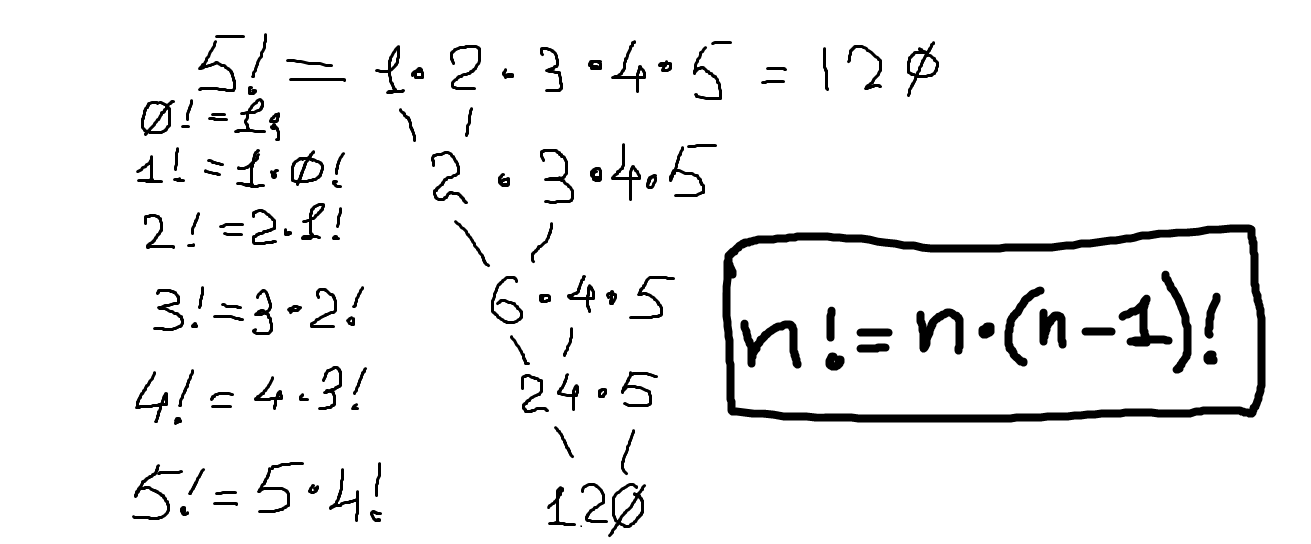 5! = 1·2·3·4·5 = 120
0! = 1;
1! = 1·0!
2! = 2·1!
3! = 3·2!
4! = 4·3!
5! = 5·4!
2·3·4·5
6·4·5
24·5
120
n! = n·(n-1)!